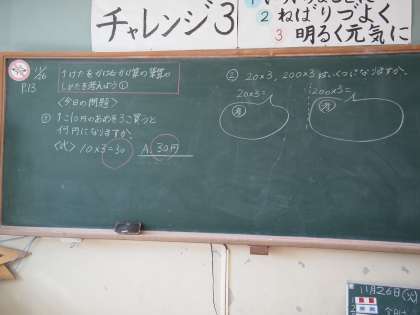 チャレンジ3
2 ねばりづよく
3 明るく元気に
11/26
P.13
1けたをかけるかけ算の筆算の
しかたを考えよう①
<今日の問題>
① 1こ10円のあめを3こ買うと
何円になりますか。
<式> 10×3=30 A. 30円
② 20×3, 200×3は、いくつになりますか。
20×3=
200×3=
11月26日(火)